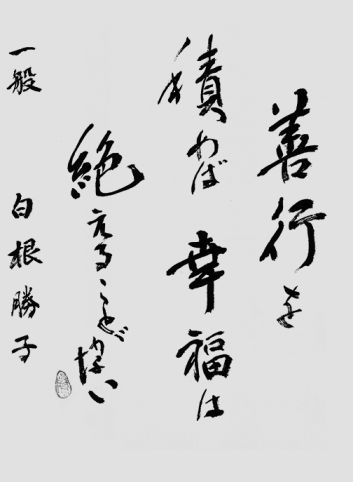 善行を
積めば幸福は
絶えることがない
一般 白根勝子